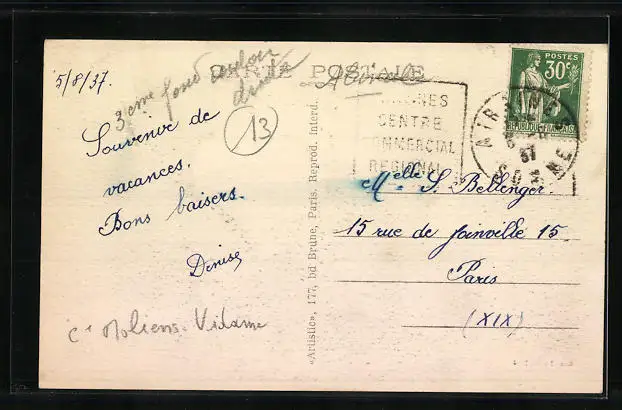 CARTE POSTALE
5/8/37.
3eme fond couloir
droite
13
Souvenir de
vacances.
Bons baisers.
Denise
Cn Moliens-Vidame
«Artistic», 177, bd Brune, Paris. Reprod. Interd.
AIRAINES
CENTRE
COMMERCIAL
REGIONAL
POSTES
30c
REPUBLIQUE FRANÇAISE
AIRAINES
37
SOMME
Melle S. Bellenger.
15 rue de Joinville 15.
Paris
(XIX)